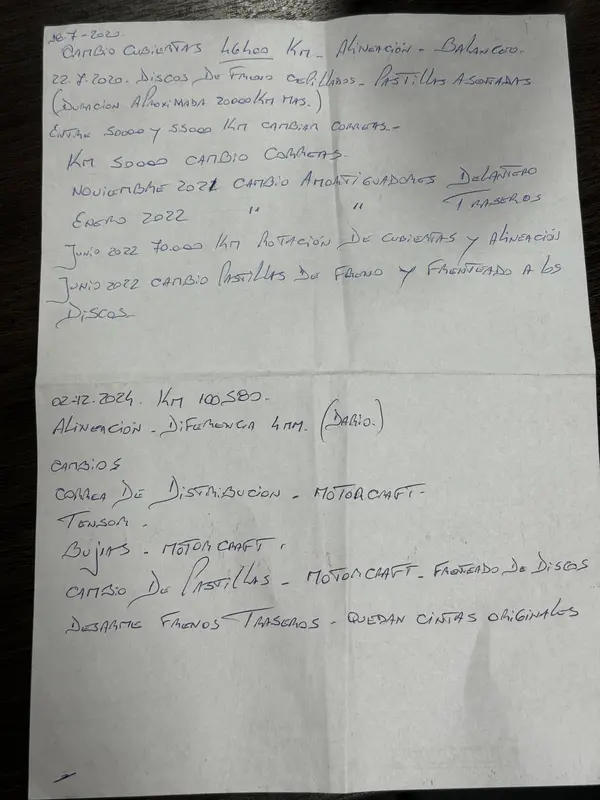 18-7-2020.
CAMBIO CUBIERTAS 46400 KM - ALINEACIÓN - BALANCEO.
22.7.2020. DISCOS DE FRENO CEPILLADOS - PASTILLAS ASENTADAS
(DURACION APROXIMADA 20000 KM MAS.)
ENTRE 50000 Y 55000 KM CAMBIAR CORREAS.-
KM 50000 CAMBIO CORREAS.
NOVIEMBRE 2021 CAMBIO AMORTIGUADORES DELANTERO
ENERO 2022 " " TRASEROS
JUNIO 2022 70.000 KM ROTACIÓN DE CUBIERTAS Y ALINEACIÓN
JUNIO 2022 CAMBIO PASTILLAS DE FRENO Y FRENTEADO A LOS
DISCOS.
02-12.2024. KM 100,580.
ALINEACIÓN - DIFERENCIA 4MM. (DARIO.)
CAMBIOS
CORREA DE DISTRIBUCION - MOTORCRAFT-
TENSOR.
BUJIAS - MOTORCRAFT.
CAMBIO DE PASTILLAS - MOTORCRAFT - FRENTEADO DE DISCOS
DESARME FRENOS TRASEROS - QUEDAN CINTAS ORIGINALES